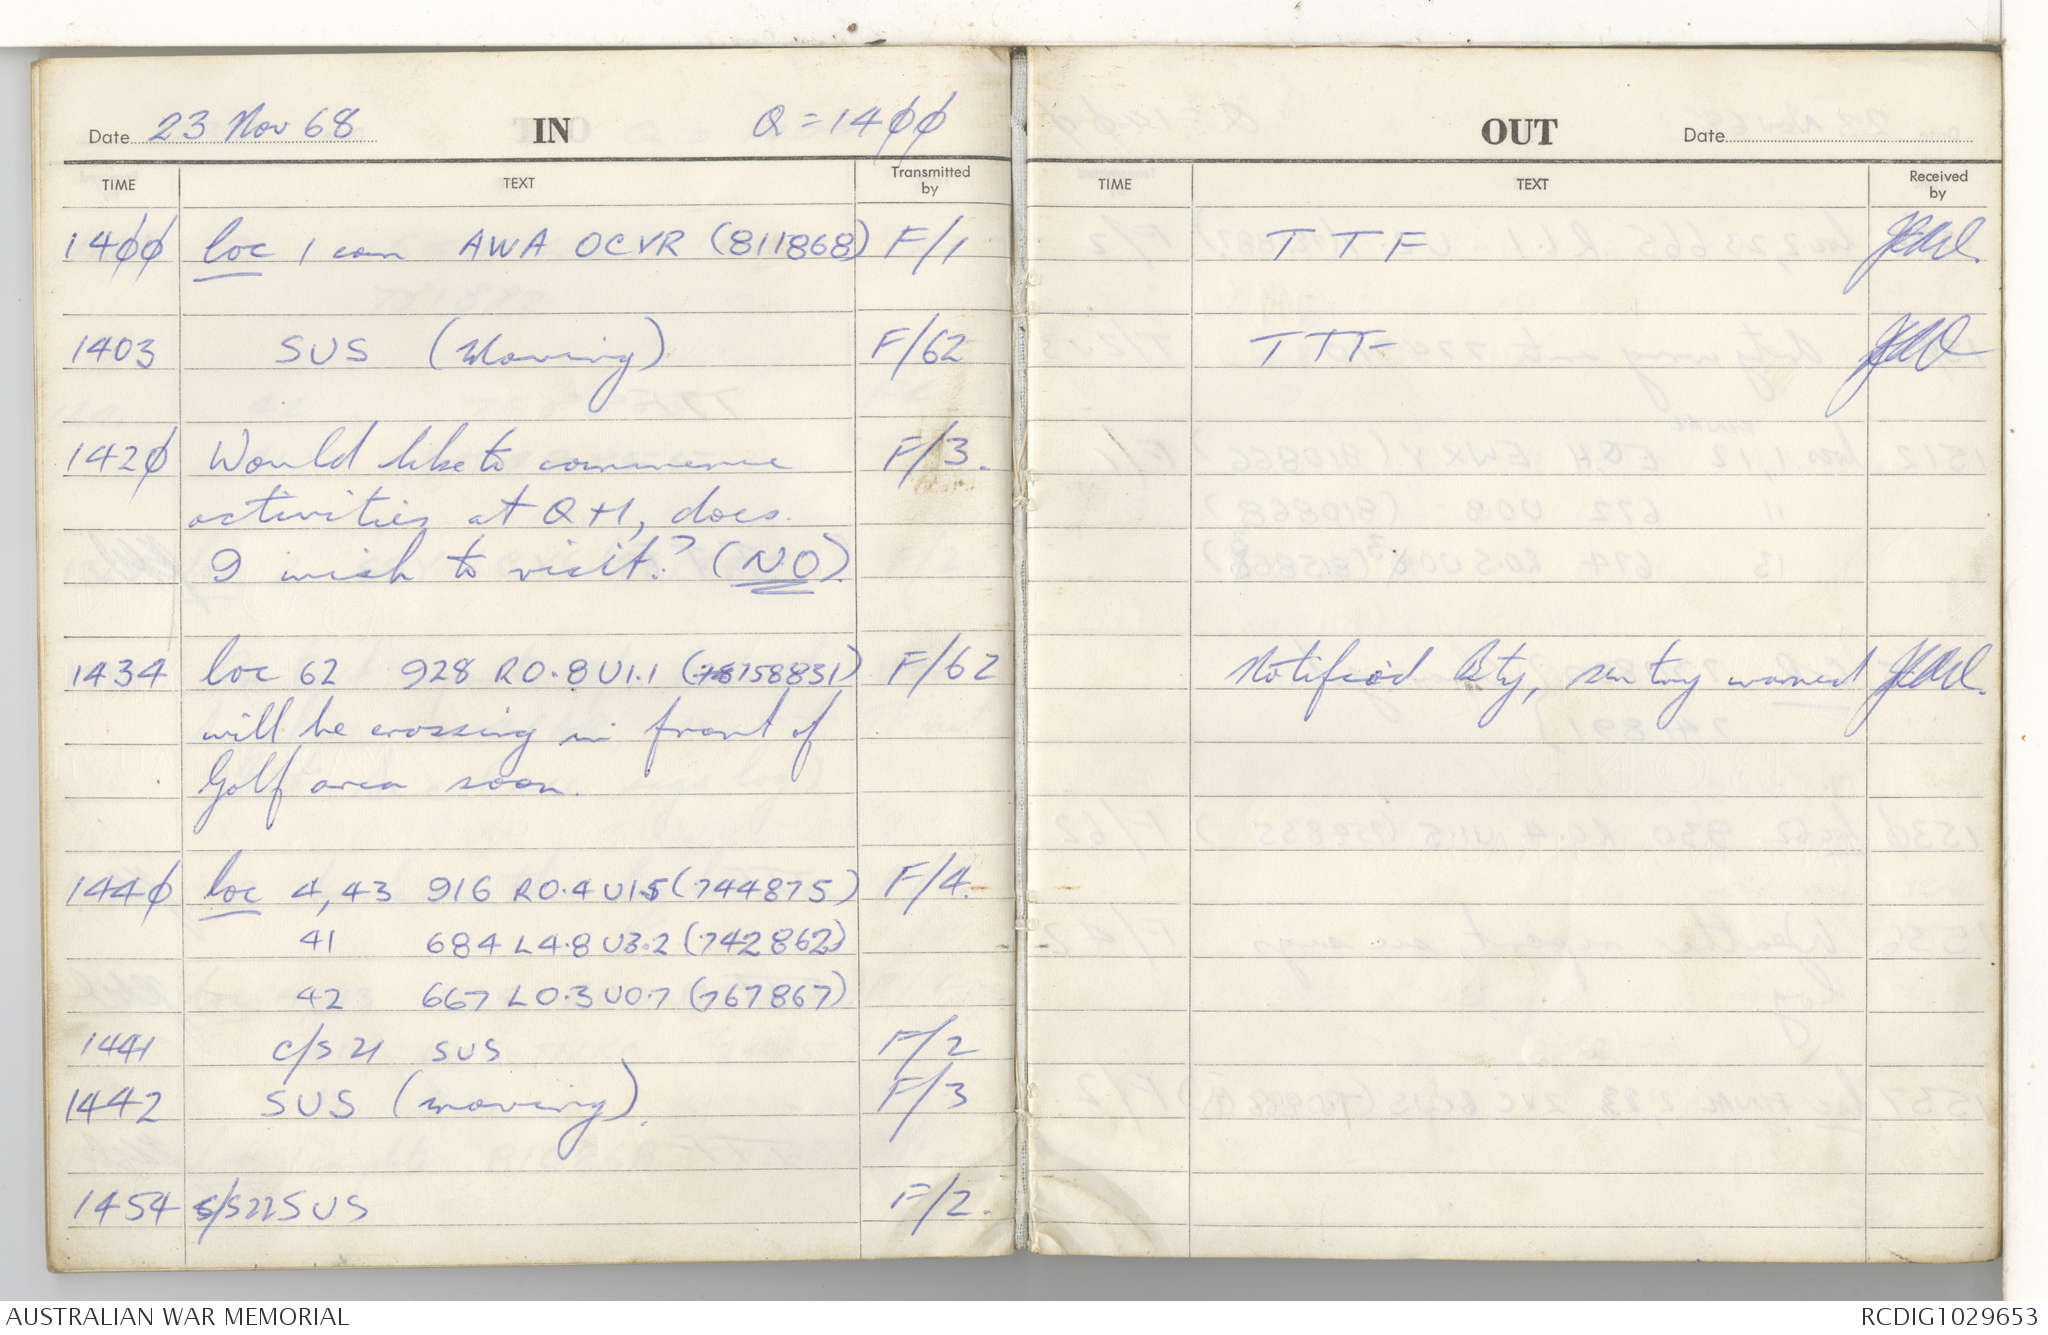 Date 23 Nov 68 IN Q = 1400
TIME TEXT Transmitted by
1400 loc 1 com AWA OCVR (811868) F/1
1403 SUS (Moving) F/62
1420 Would like to commence F/3.
activities at Q+1, does
I wish to visit? (NO).
1434 loc 62 928 R0.8 U1.1 (758831) F/62
will be crossing in front of
Golf area soon.
1440 loc 4, 43 916 R0.4 U1.5 (744875) F/4.
41 684 L4.8 U3.2 (742862)
42 667 L0.3 U0.7 (767867)
1441 c/s 21 SUS F/2
1442 SUS (moving). F/3
1454 c/s 22 SUS F/2.
OUT Date
TIME TEXT Received by
TTF
TTF
Notified Bty, sentry warned
AUSTRALIAN WAR MEMORIAL RCDIG1029653